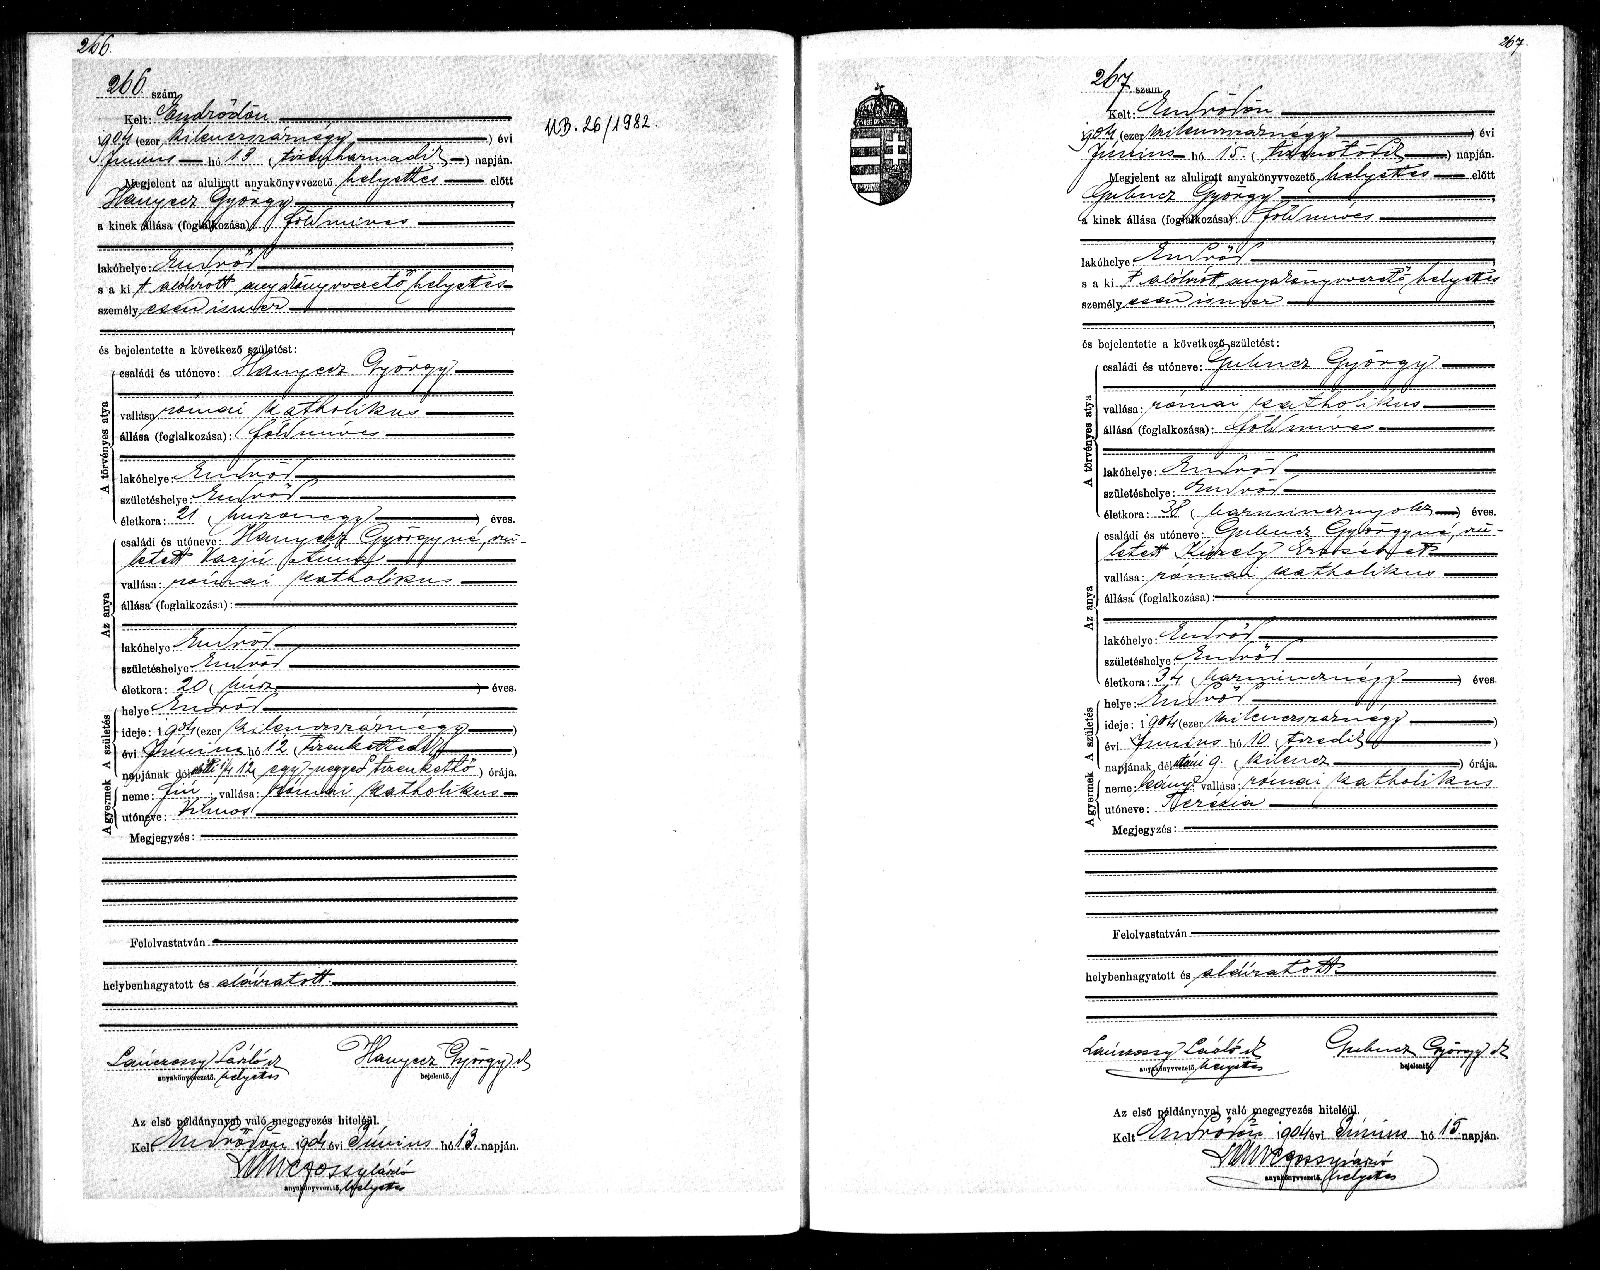 266.
266 szám
Kelt: Endrődön
1904 (ezer kilenczszáznégy) évi
Június hó 13 (tizenharmadik) napján.
Megjelent az alulirott anyakönyvvezető helyettes előtt
Hanyecz György
a kinek állása (foglalkozása) földmives
lakóhelye: Endrőd
s a kit alólirott anyakönyvvezető helyettes
személyesen ismer
és bejelentette a következő születést:
A törvényes atya
családi és utóneve: Hanyecz György
vallása római katholikus
állása (foglalkozása): földmíves
lakóhelye: Endrőd
születéshelye: Endrőd
életkora: 21 (huszonegy) éves.
Az anya
családi és utóneve: Hanyecz Györgyné, szü-
letett Varjú Anna
vallása: római katholikus
állása (foglalkozása):
lakóhelye: Endrőd
születéshelye Endrőd
életkora: 20 (húsz) éves.
A születés
helye: Endrőd
ideje: 1904 (ezer kilenczszáznégy)
évi Június hó 12 (tizenkettedik)
napjának délelőtti 1/4 12 (egy negyed tizenkettő) órája.
A gyermek
neme: fiú vallása: római katholikus
utóneve: Vilmos
Megjegyzés:
Felolvastatván
helybenhagyatott és aláiratott.
László Hanyecz György
anyakönyvvezető, helyettes bejelentő.
Az első példánynyal való megegyezés hiteléül.
Kelt Endrődön 1904 évi Június hó 13 napján.
László
anyakönyvvezető, helyettes
UB. 26/1982.
267.
267 szám
Kelt: Endrődön
1904 (ezer kilenczszáznégy) évi
Június hó 15. (tizenötödik) napján.
Megjelent az alulirott anyakönyvvezető helyettes előtt
Gubucz György
a kinek állása (foglalkozása) földmíves
lakóhelye Endrőd
s a kit alólirott anyakönyvvezető helyettes
személyesen ismer
és bejelentette a következő születést:
A törvényes atya
családi és utóneve: Gubucz György
vallása: római katholikus
állása (foglalkozása): földmíves
lakóhelye: Endrőd
születéshelye: Endrőd
életkora: 38 (harmincznyolcz) éves.
Az anya
családi és utóneve: Gubucz Györgyné, szü-
letett Király Erzsébet
vallása: római katholikus
állása (foglalkozása):
lakóhelye: Endrőd
születéshelye Endrőd
életkora: 34 (harmincznégy) éves.
A születés
helye: Endrőd
ideje: 1904 (ezer kilenczszáznégy)
évi Június hó 10 (tizedik)
napjának délutáni 9. (kilencz) órája.
A gyermek
neme: leány vallása: római katholikus
utóneve: Terézia
Megjegyzés:
Felolvastatván
helybenhagyatott és aláiratott
László Gubucz György
anyakönyvvezető, helyettes bejelentő.
Az első példánynyal való megegyezés hiteléül.
Kelt Endrődön 1904 évi Június hó 15 napján.
László
anyakönyvvezető, helyettes